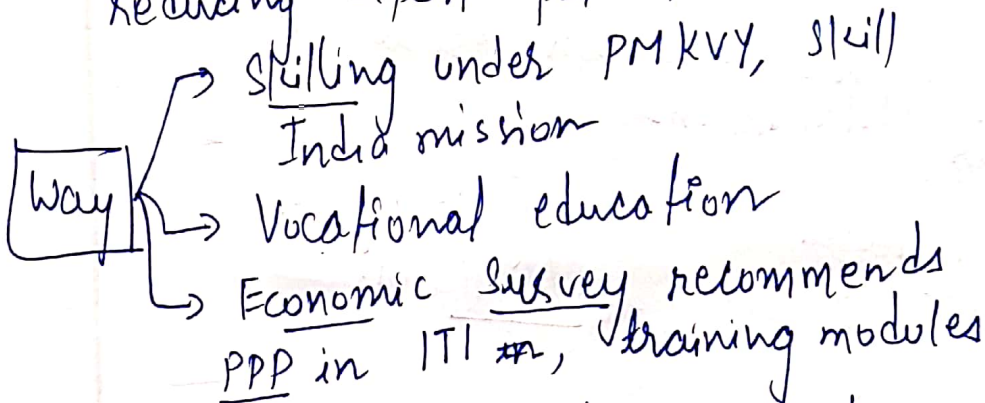 Reducing
Skilling under PMKVY, Skill
India mission
Way
Vocational education
Economic Survey recommends
PPP in ITI, training modules